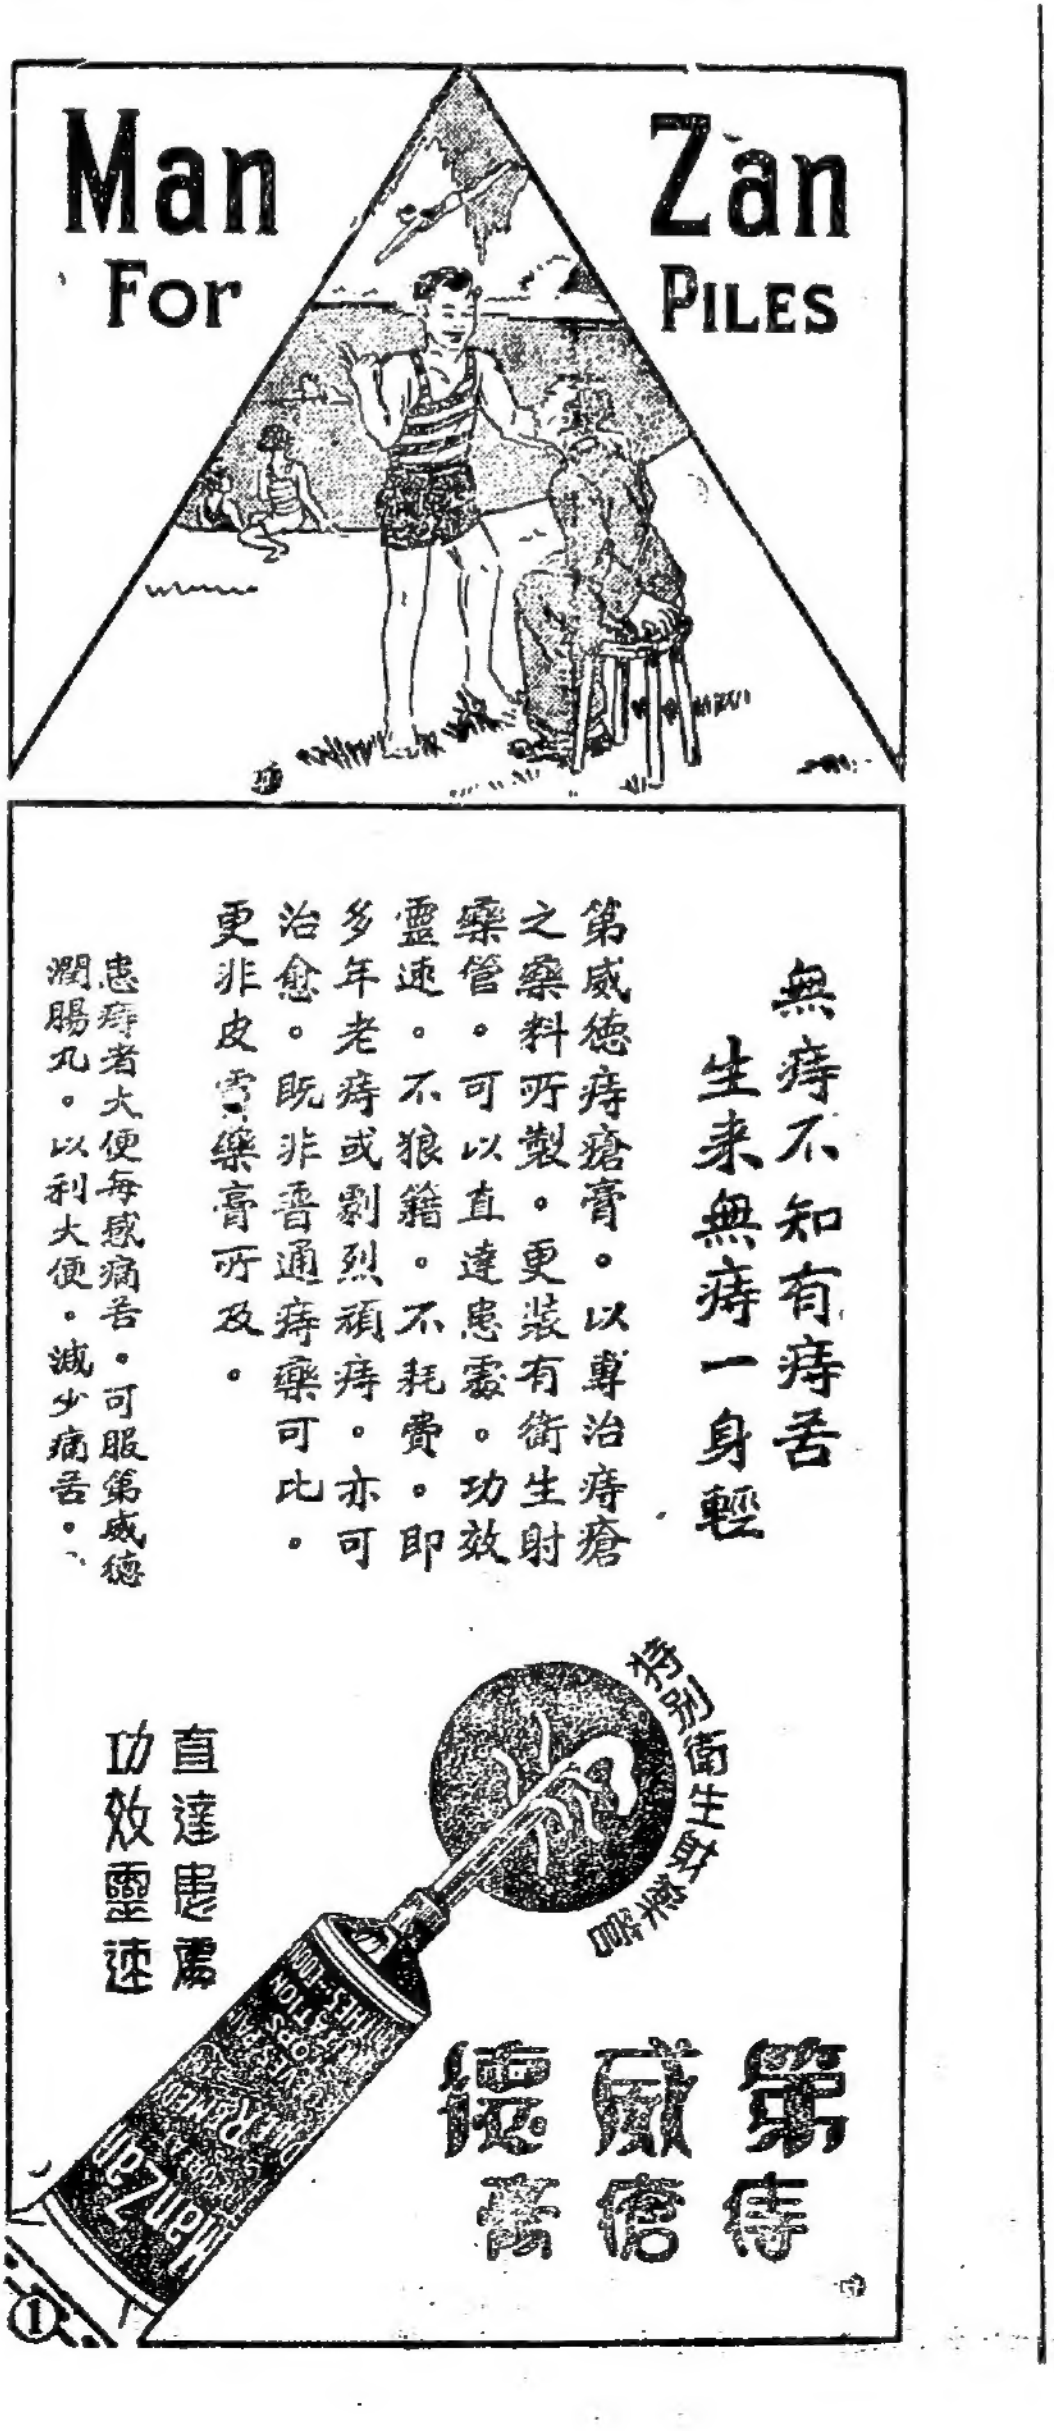 Man Zan
For PILES
無痔不知有痔苦
生来無痔一身輕
第威德痔瘡膏。以專治痔瘡
之藥料所製。更裝有衛生射
藥管。可以直達患處。功效
靈速。不狼籍。不耗費。即
多年老痔或劇烈頑痔。亦可
治愈。既非普通痔藥可比。
更非皮膏藥膏所及。
患痔者大便每感痛苦。可服第威德
潤腸丸。以利大便。減少痛苦。
特別衛生射藥管
直達患處
功效靈速
ManZan
第威德
痔瘡膏
1